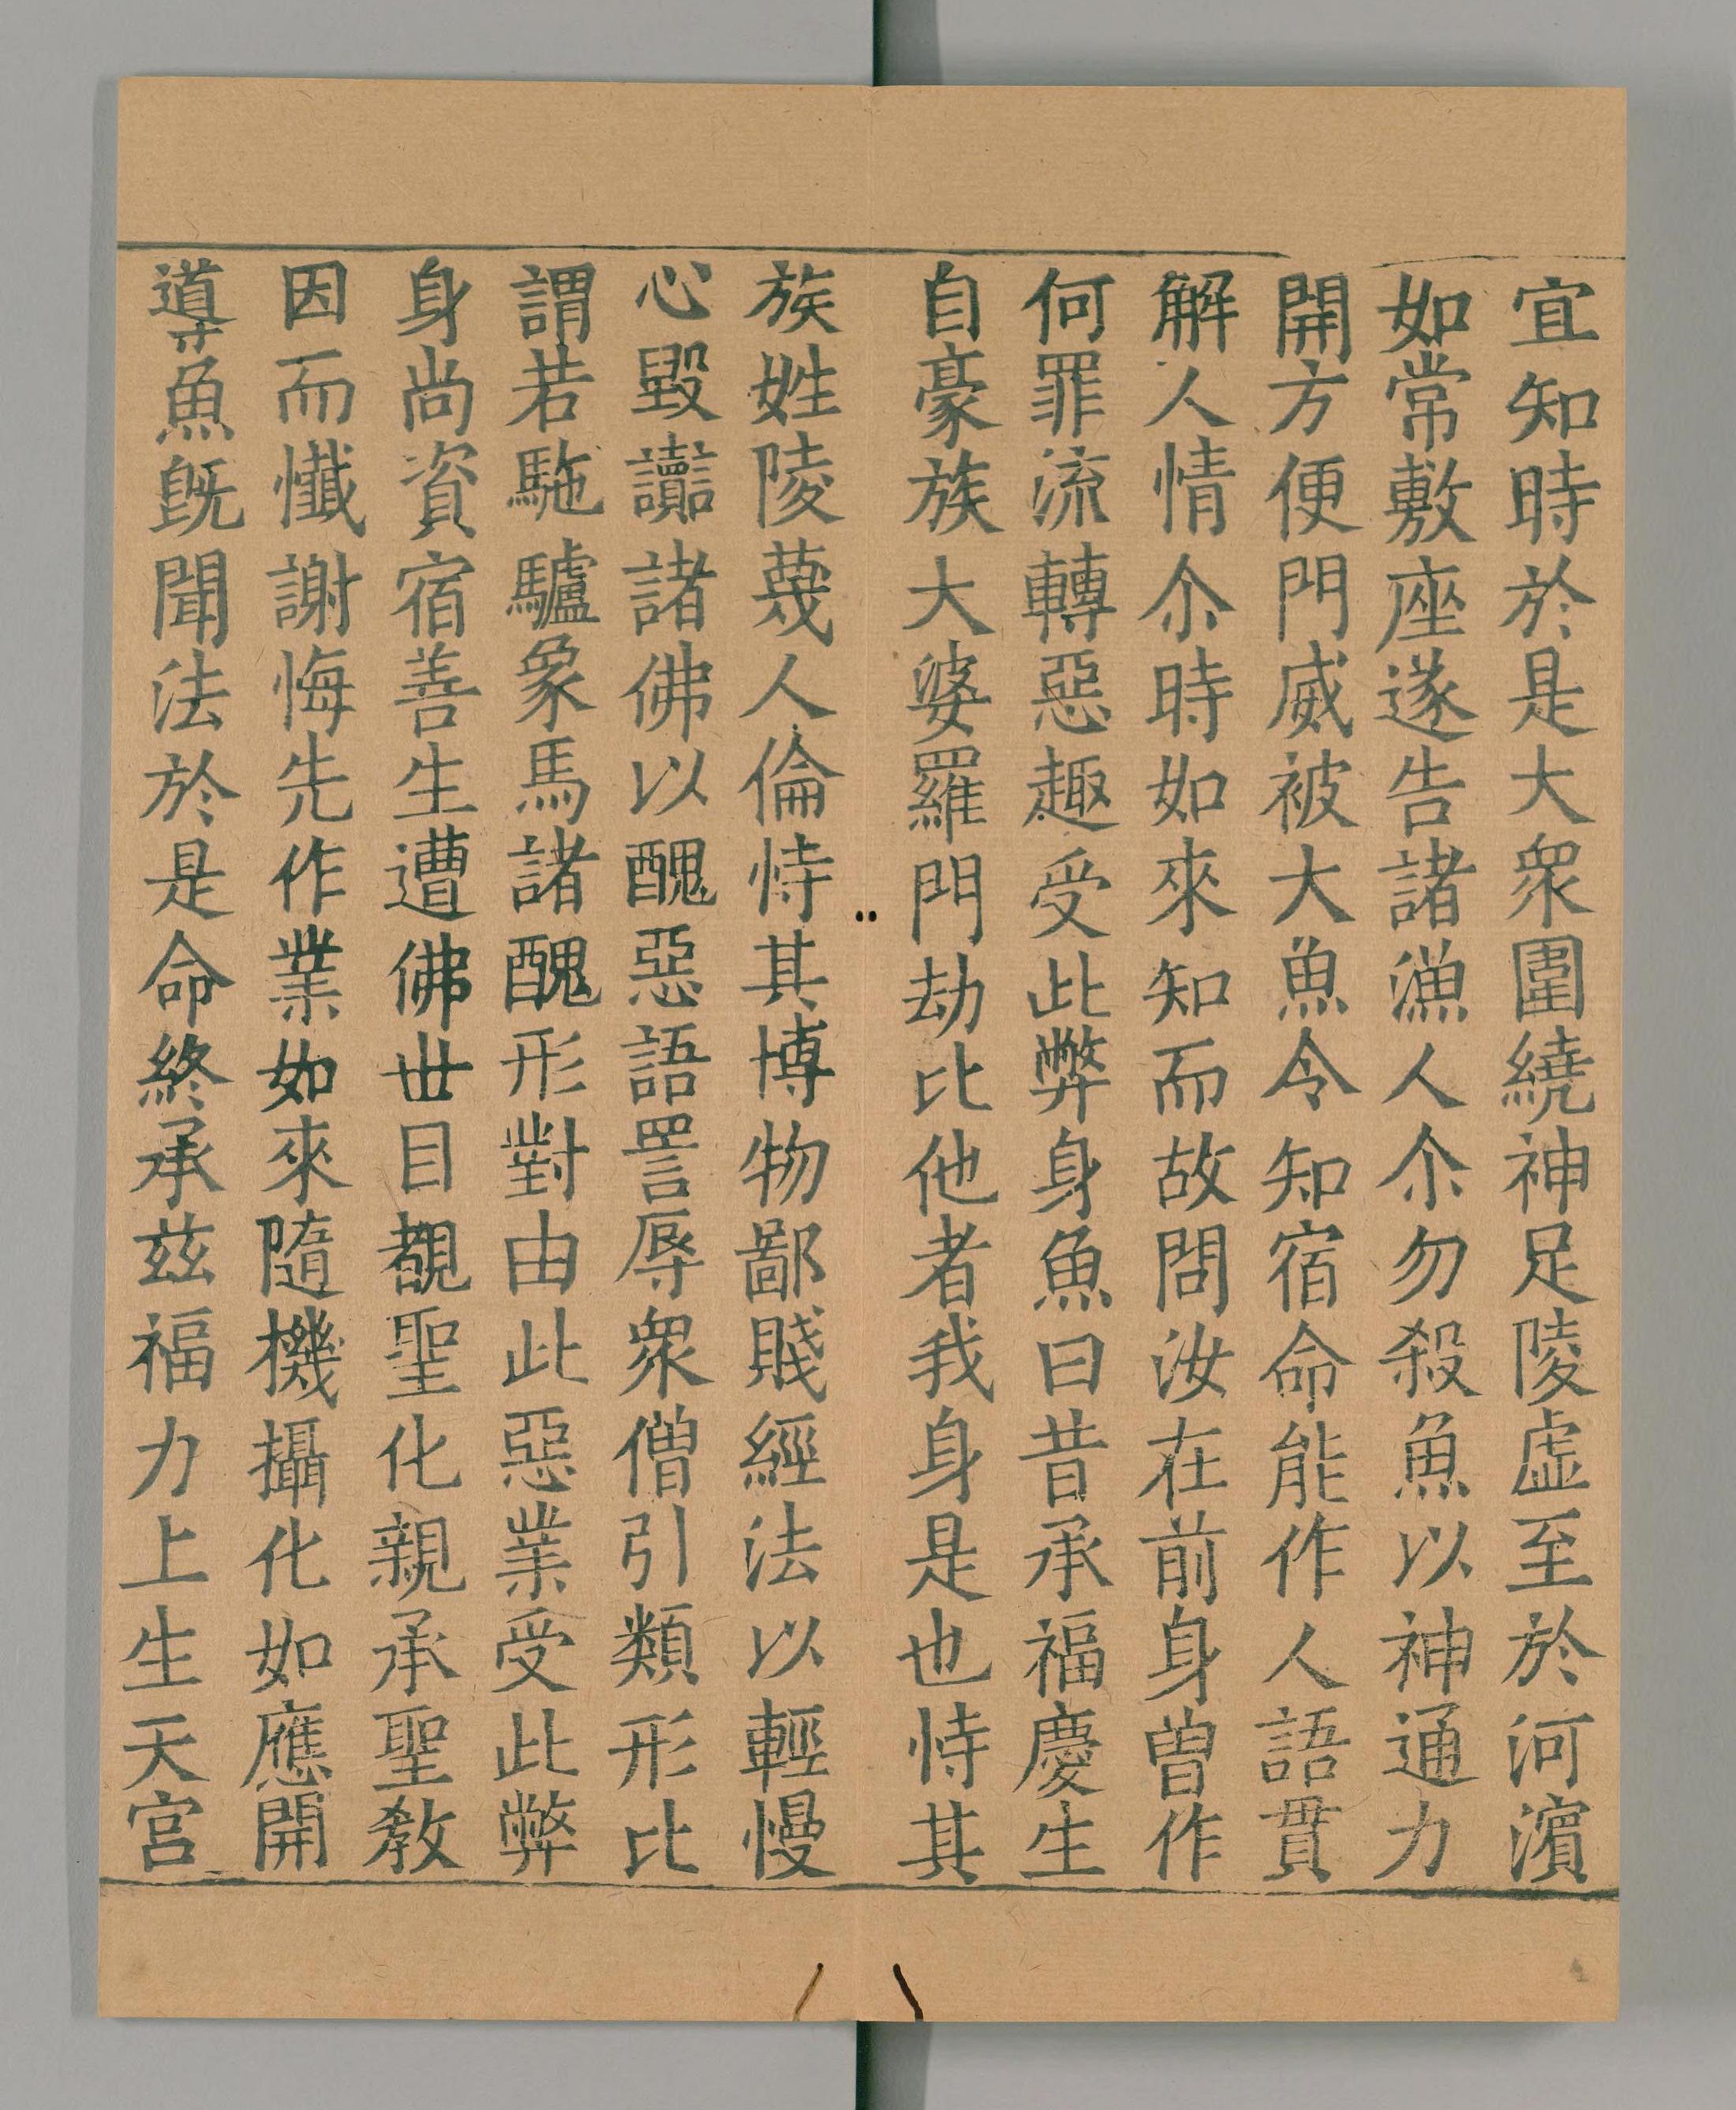 宜知時於是大衆圍繞神足陵虛至於河濱
如常敷座遂告諸漁人尒勿殺魚以神通力
開方便門威被大魚令知宿命能作人語貫
解人情尒時如來知而故問汝在前身曾作
何罪流轉惡趣受此弊身魚曰昔承福慶生
自豪族大婆羅門劫比他者我身是也恃其
族姓陵蔑人倫恃其博物鄙賤經法以輕慢
心毀讟諸佛以醜惡語詈辱衆僧引類形比
謂若駞驢象馬諸醜形對由此惡業受此弊
身尚資宿善生遭佛世目覩聖化親承聖教
因而懺謝悔先作業如來隨機攝化如應開
導魚旣聞法於是命終承茲福力上生天宮